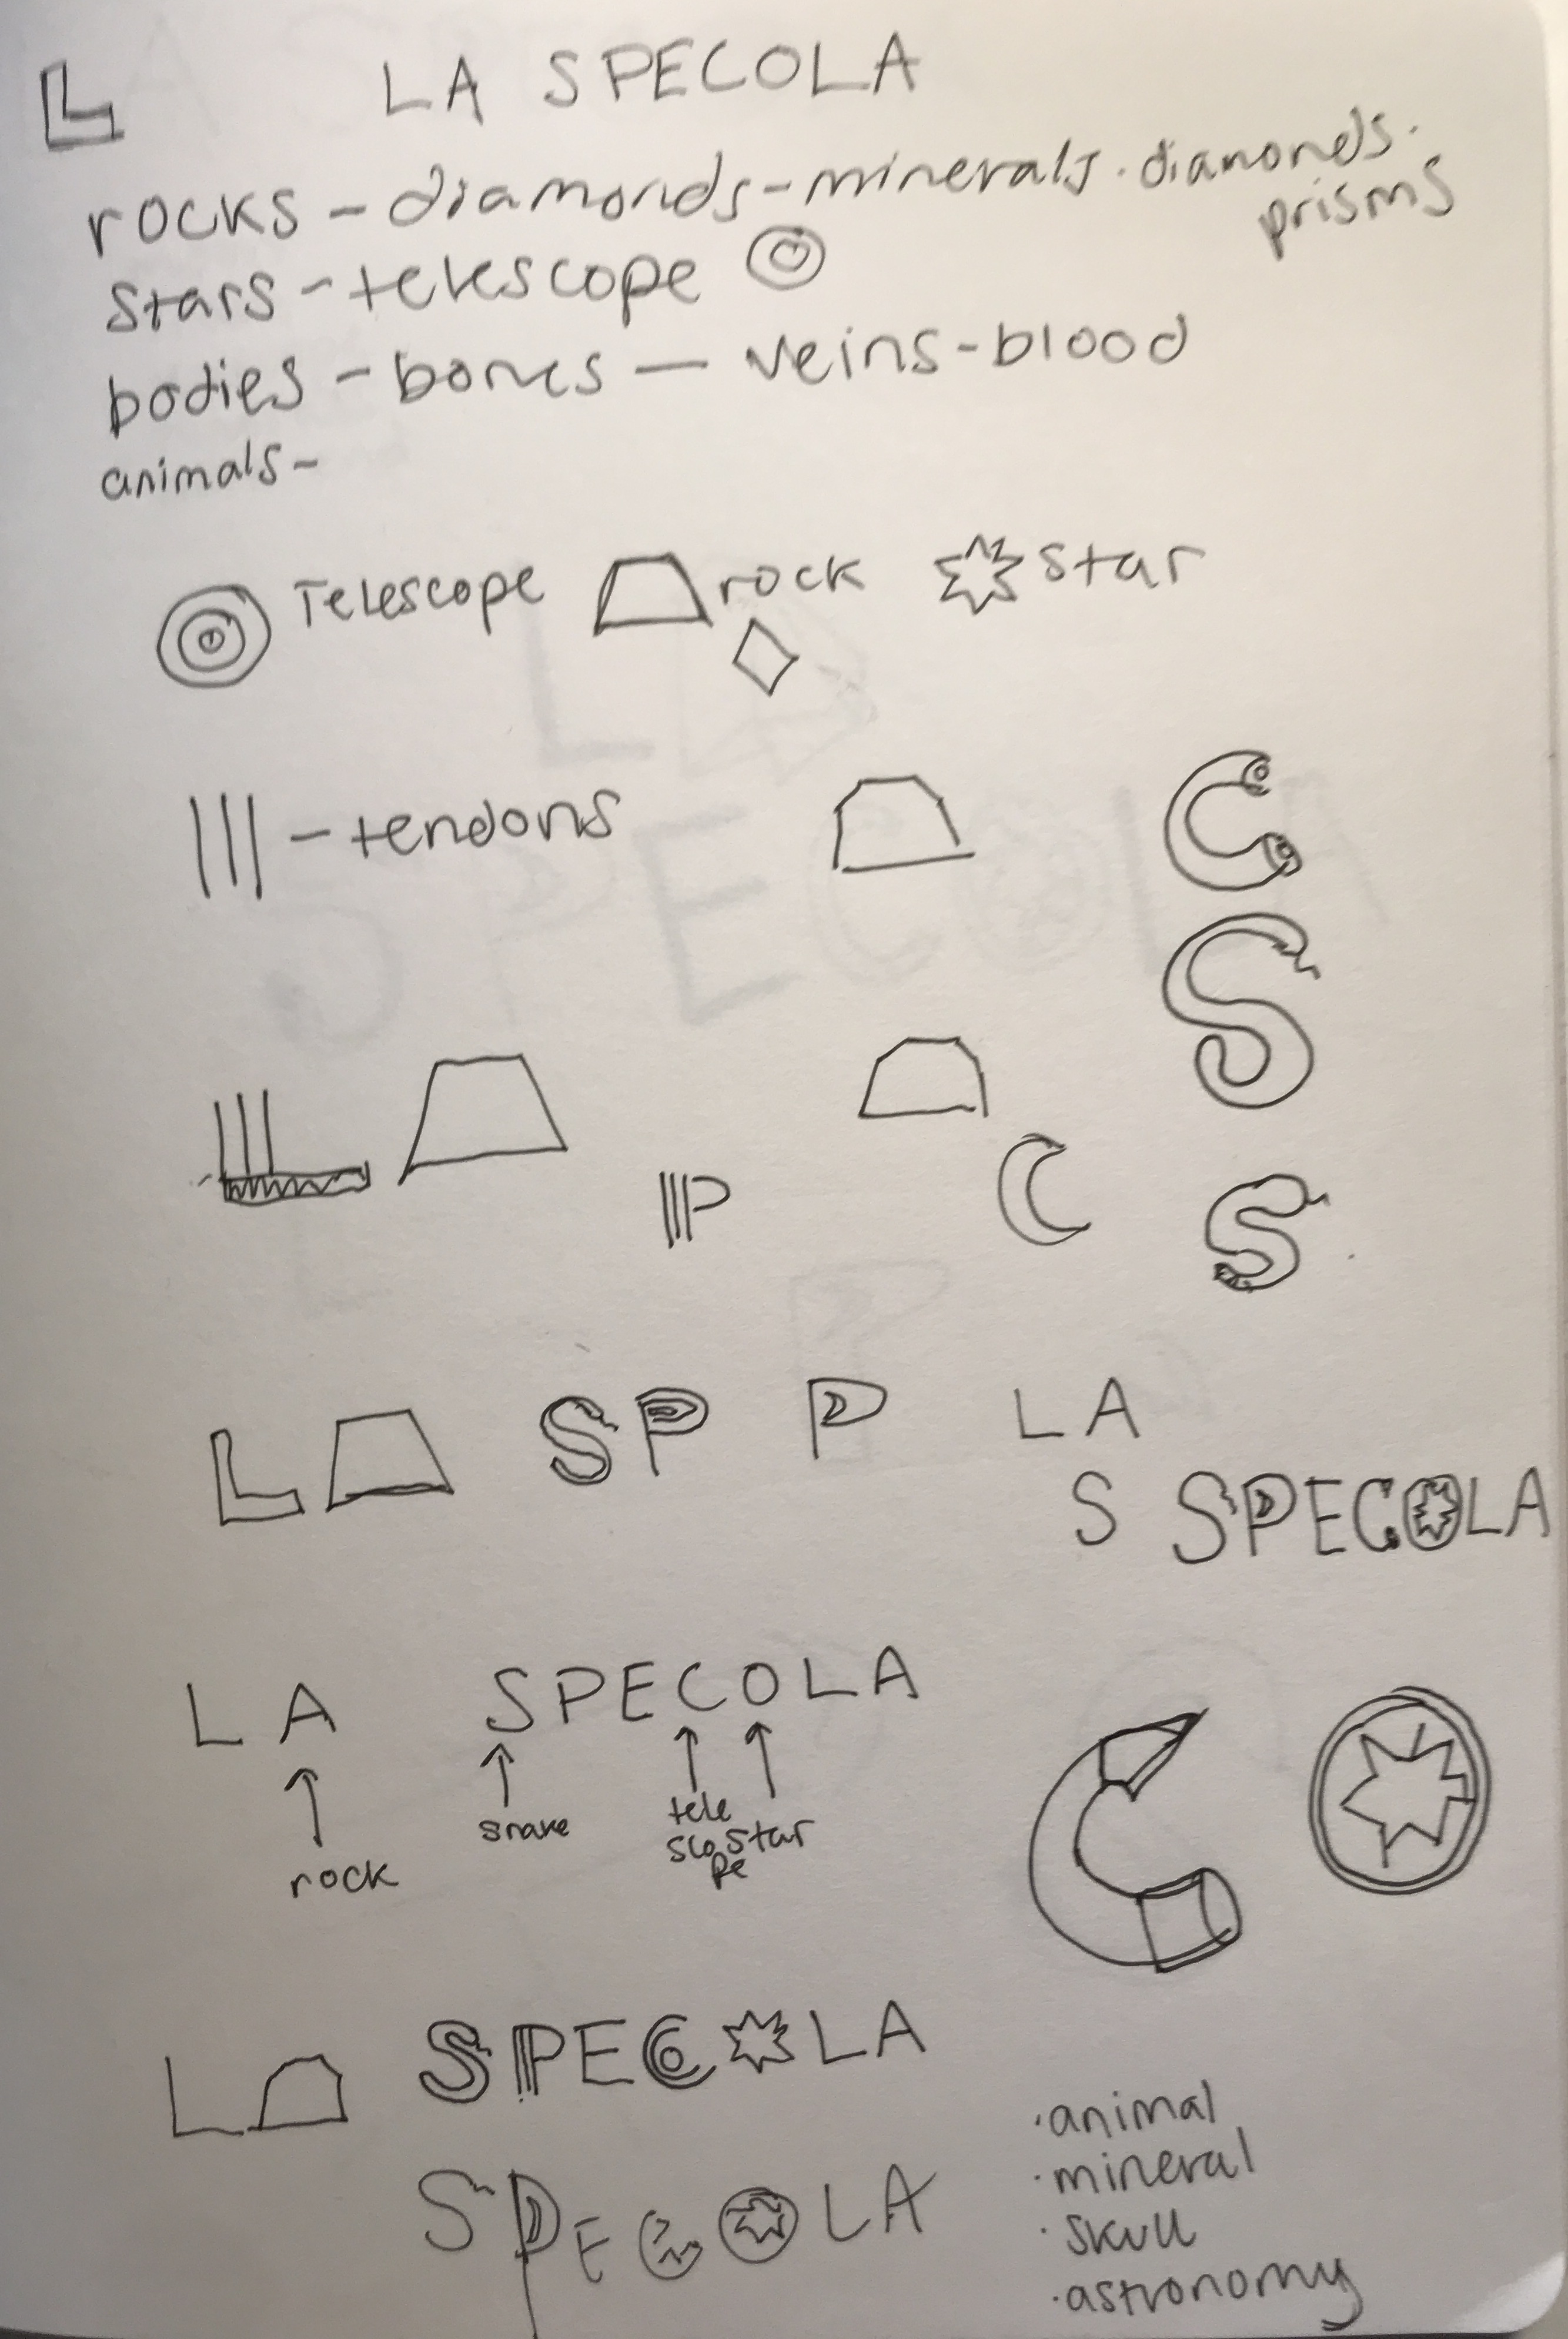 L LA SPECOLA
rocks - diamonds - minerals. diamonds.
prisms
stars - telescope
bodies - bones — veins - blood
animals -
Telescope rock star
||| - tendons
C
S
L
P C S
LA SP P LA
S SPECOLA
LA SPECOLA
rock snake tele
sco
pe star
C
LA SPECOLA
SPECOLA
·animal
·mineral
·skull
·astronomy